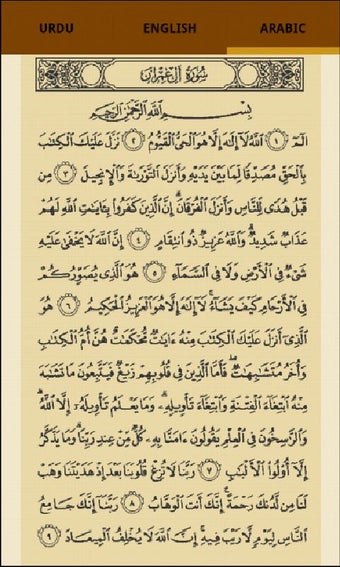 URDU ENGLISH ARABIC
سُورَةُ آلِ عِمْرَانَ
بِسْمِ ٱللَّهِ ٱلرَّحْمَٰنِ ٱلرَّحِيمِ
الٓمٓ ١ ٱللَّهُ لَآ إِلَٰهَ إِلَّا هُوَ ٱلْحَىُّ ٱلْقَيُّومُ ٢ نَزَّلَ عَلَيْكَ ٱلْكِتَٰبَ
بِٱلْحَقِّ مُصَدِّقًا لِّمَا بَيْنَ يَدَيْهِ وَأَنزَلَ ٱلتَّوْرَىٰةَ وَٱلْإِنجِيلَ ٣ مِن
قَبْلُ هُدًى لِّلنَّاسِ وَأَنزَلَ ٱلْفُرْقَانَ ۗ إِنَّ ٱلَّذِينَ كَفَرُوا۟ بِـَٔايَٰتِ ٱللَّهِ لَهُمْ
عَذَابٌ شَدِيدٌ ۗ وَٱللَّهُ عَزِيزٌ ذُو ٱنتِقَامٍ ٤ إِنَّ ٱللَّهَ لَا يَخْفَىٰ عَلَيْهِ
شَىْءٌ فِى ٱلْأَرْضِ وَلَا فِى ٱلسَّمَآءِ ٥ هُوَ ٱلَّذِى يُصَوِّرُكُمْ
فِى ٱلْأَرْحَامِ كَيْفَ يَشَآءُ ۚ لَآ إِلَٰهَ إِلَّا هُوَ ٱلْعَزِيزُ ٱلْحَكِيمُ ٦ هُوَ
ٱلَّذِىٓ أَنزَلَ عَلَيْكَ ٱلْكِتَٰبَ مِنْهُ ءَايَٰتٌ مُّحْكَمَٰتٌ هُنَّ أُمُّ ٱلْكِتَٰبِ
وَأُخَرُ مُتَشَٰبِهَٰتٌ ۖ فَأَمَّا ٱلَّذِينَ فِى قُلُوبِهِمْ زَيْغٌ فَيَتَّبِعُونَ مَا تَشَٰبَهَ
مِنْهُ ٱبْتِغَآءَ ٱلْفِتْنَةِ وَٱبْتِغَآءَ تَأْوِيلِهِۦ ۗ وَمَا يَعْلَمُ تَأْوِيلَهُۥٓ إِلَّا ٱللَّهُ ۗ
وَٱلرَّٰسِخُونَ فِى ٱلْعِلْمِ يَقُولُونَ ءَامَنَّا بِهِۦ كُلٌّ مِّنْ عِندِ رَبِّنَا ۗ وَمَا يَذَّكَّرُ
إِلَّآ أُو۟لُوا۟ ٱلْأَلْبَٰبِ ٧ رَبَّنَا لَا تُزِغْ قُلُوبَنَا بَعْدَ إِذْ هَدَيْتَنَا وَهَبْ
لَنَا مِن لَّدُنكَ رَحْمَةً ۚ إِنَّكَ أَنتَ ٱلْوَهَّابُ ٨ رَبَّنَآ إِنَّكَ جَامِعُ
ٱلنَّاسِ لِيَوْمٍ لَّا رَيْبَ فِيهِ ۚ إِنَّ ٱللَّهَ لَا يُخْلِفُ ٱلْمِيعَادَ ٩